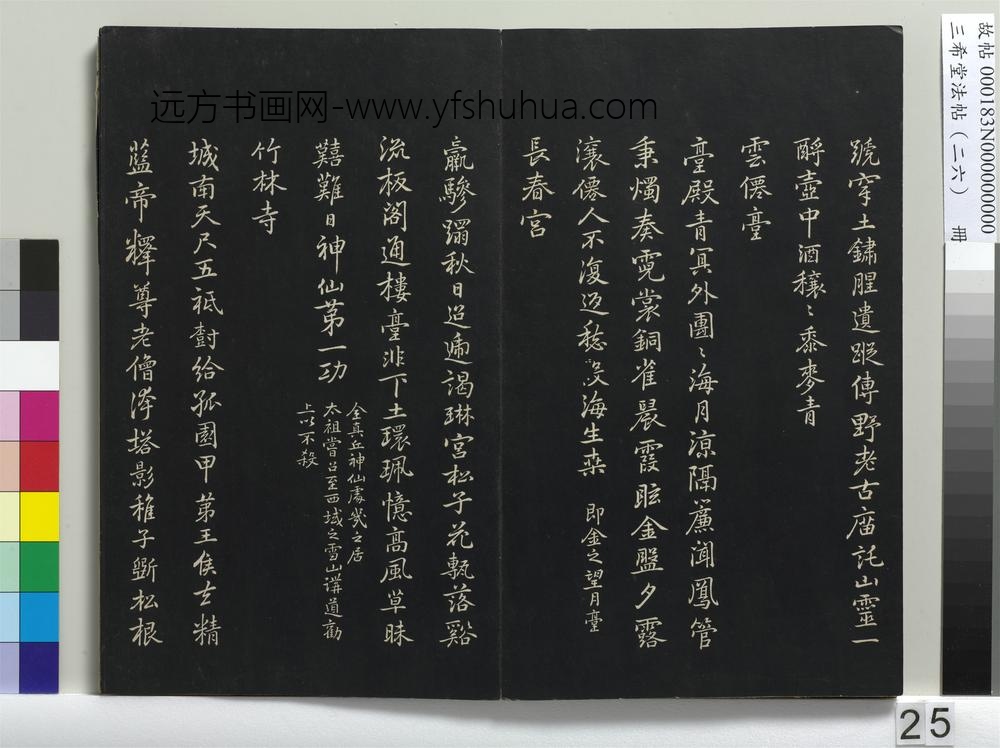 號穿土鏽腥遺蹤傳野老古庿託山靈一
酹壺中酒穰〻黍麥青
雲僊臺
臺殿青冥外團〻海月涼隔簾聞鳳管
秉燭奏霓裳銅雀晨霞眩金盤夕露
瀼僊人不復返愁沒海生桒 即金之望月臺
長春宮
羸驂躡秋日迢遞謁琳宮松子花甎落谿
流板閣通樓臺非下土環珮憶高風草昧
囏難日神仙第一功
全真丘神仙處㡬之居
太祖嘗召至西域之雪山講道勸
上以不殺
竹林寺
城南天尺五祗尌給孤園甲第王侯去精
藍帝釋尊老僧浮塔影稚子斲松根
远方书画网-www.yfshuhua.com
故帖000183N000000000
三希堂法帖(二六) 冊
25